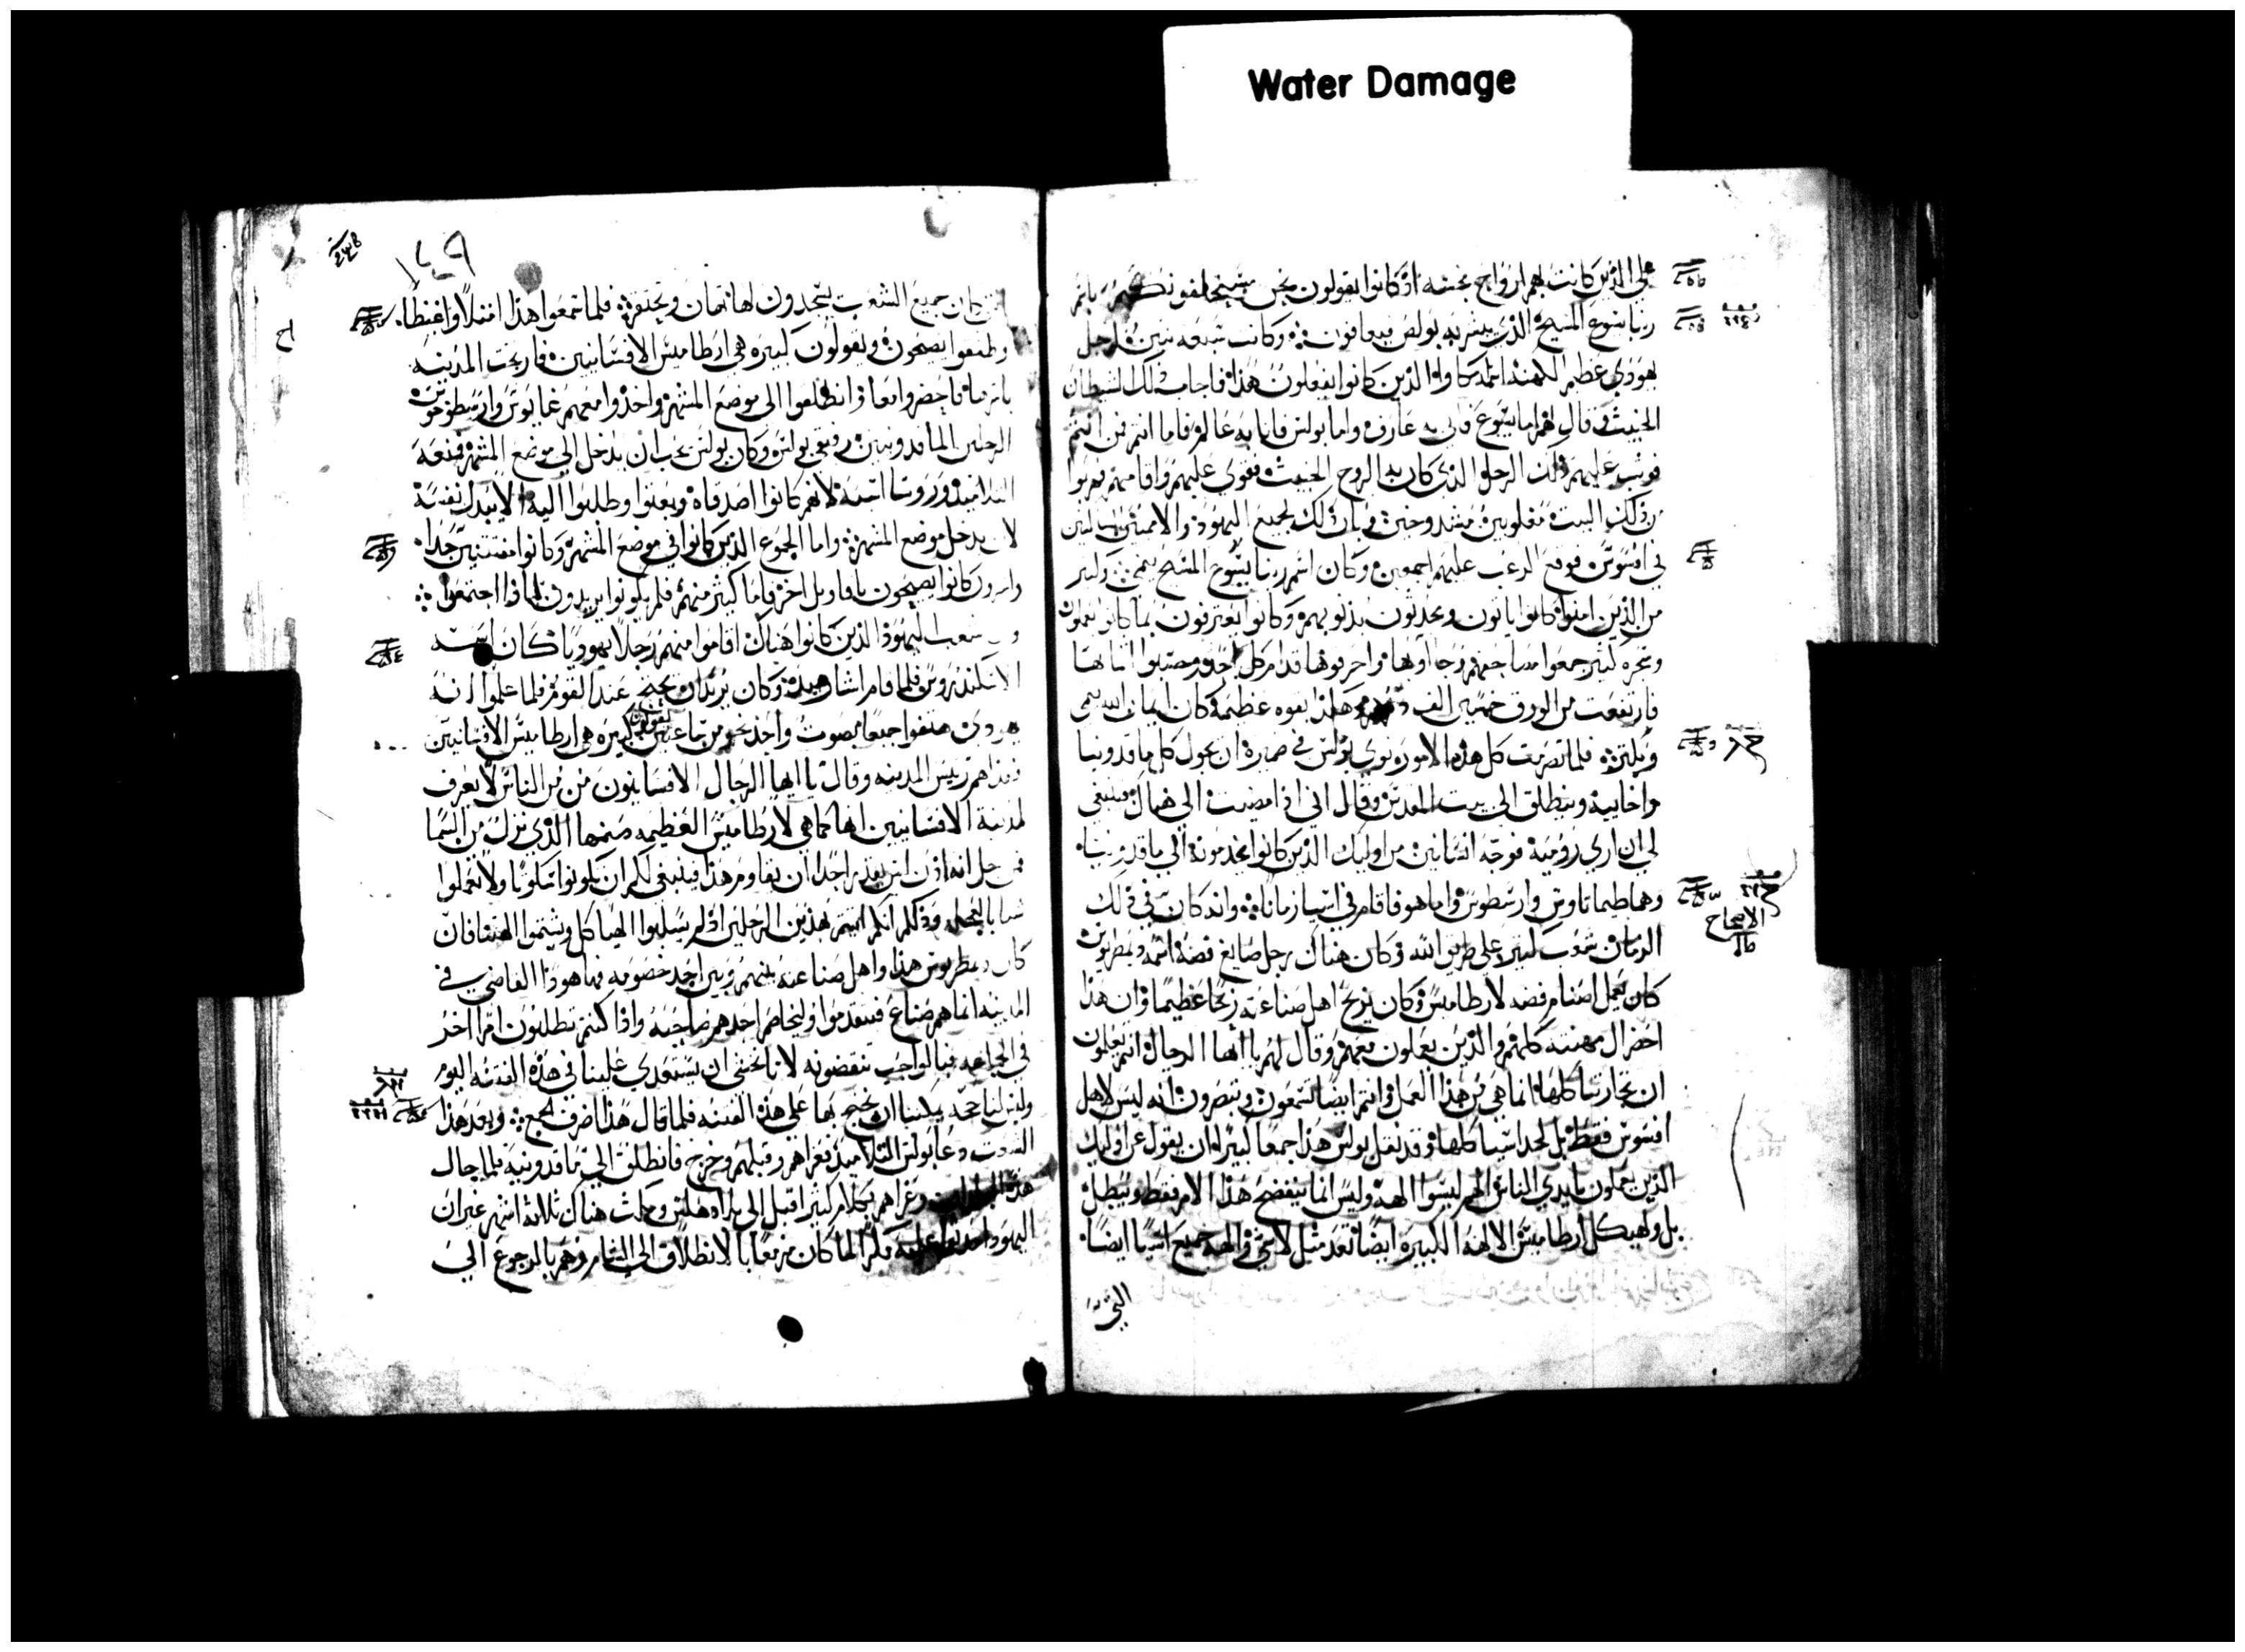 Water Damage
على الذين كانت بهم ارواح نجسه اذ كانوا يقولون نحن
ربنا يسوع المسيح الذي يبشر به بولص فيعافون وكانت سبعه بنين لرجل
يهودي عظيم الكهنه كانوا الذين كانوا يفعلون هذا فاجاب ذلك الشيطان
الخبيث وقال لهم اما يسوع فاني به عارف واما بولس فانا به عالم فاما انتم فمن انتم
فوثب عليهم ذلك الرجل الذي كان به الروح الخبيث فقوي عليهم
ذلك البيت مشدوخين وبان ذلك لجميع اليهود والامميين
في افسوس فوقع الرعب عليهم اجمعين وكان اسم ربنا يسوع المسيح
من الذين امنوا كانوا ياتون ويحدثون بذنوبهم وكانوا يعترفون بما كانوا يعملون
وسحره كثير جمعوا مصاحفهم وجاوا بها واحرقوها قدام كل احد وحسبوا اثمانها
فارتفعت من الورق خمسين الف وهكذا بقوه عظيمة كان ايمان الله ينمي
ويكثر فلما تصرمت كل هذه الامور نوى بولس في ضميره ان يجول كل ماقدونيا
واخاييه وينطلق الى بيت المقدس وقال اني اذا مضيت الى هناك فينبغي
لي ان ارى روميه فوجه انسانين من اوليك الذين كانوا يخدمونه الي ماقدونيا
وهما طيماتاوس وارسطوس واما هو فاقام في اسيا زمانا وانه كان في ذلك
الزمان شغب كثير على طريق الله وكان هناك رجل صايغ فضه اسمه ديمطريوس
كان يعمل اصنام فضه لارطاميس وكان يربح اهل صناعته ربحا عظيما وان هذا
احضر ال مهنته كلهم والذين يعملون معهم وقال لهم يا ايها الرجال انتم تعلمون
ان تجارتنا كلها انما هي من هذا العمل وانتم ايضا تسمعون وتبصرون انه ليس لاهل
افسوس فقط بل لجل اسيا كلها قد نقل بولس هذا جمعا كثيرا ان يقول عن اوليك
الذين يعملون بايدي الناس انهم ليسوا الهه وليس انما يفتضح هذا الامر فقط ويبطل
بل وهيكل ارطاميس الالهه الكبيره ايضا تعد مثل لا شي والهة جميع اسيا ايضا
التي
الاصحاح
248
كان جميع الشعب يسجدون لها فلما سمعوا هذا امتلاوا غيظا
وطفقوا يصيحون ويقولون كبيره هي ارطاميس الافسانيين فارتجت المدينه
باسرها فاحضروا معا وانطلقوا الى موضع المشهر واخذوا معهم غايوس وارسطرخوس
الرجلين الماقدونيين رفيقي بولس وكان بولس يحب ان يدخل الى موضع المشهر فمنعه
التلاميذ وروسا اسيه لانهم كانوا اصدقاه وبعثوا وطلبوا اليه الا يبذل نفسه
لان يدخل موضع المشهر واما الجموع الذين كانوا في موضع المشهر وكانوا مفتتنين جدا
كانوا يصيحون باقاويل اخر فاما كثير منهم فلم يكونوا يدرون لماذا اجتمعوا
شعب اليهود الذين كانوا هناك اقاموا منهم رجلا يهوديا كان اسمه
الاسكندروس فلما قام اشار بيده وكان يريد ان يحتج عند القوم فلما علموا انه
يهودي هتفوا جميعا بصوت واحد نحو من ساعتين يقولون كبيره هي ارطاميس الافسانيين
رييس المدينه وقال يا ايها الرجال الافسانيون من من الناس لا يعرف
لمدينة الافسانيين انها لارطاميس العظيمه وصنمها الذي نزل من السما
فمن اجل انه اذن ليس يقدر احدا ان يقاوم هذا فينبغي لكم ان تكونوا سكوتا ولا تعملوا
شيا بالعجله وذلكم انكم اتيتم بهذين الرجلين اذ لم يسلبوا الهياكل ولا يشتموا الهتنا فان
كان ديمطريوس هذا واهل صناعته بينهم وبين احد خصومه فها هوذا القاضي في
المدينه انما هم صناع فليتقدموا وليخاصم احدهم صاحبه واذا كنتم تطلبون امرا اخر
في الجماعه فبالواجب تنقضونه لانا نخشى ان يستعدي علينا في هذه الفتنه اليوم
وليس لنا حجه يمكننا ان نحتج بها على هذه الفتنه فلما قال هذا صرف الجمع وبعد هذا
دعا بولس التلاميذ فعزاهم وقبلهم وخرج فانطلق الى ماقدونيه فلما جال
هذه البلدان وعزاهم بكلام كثير اقبل الى بلاد هلس ومكث هناك ثلاثة اشهر غير ان
اليهود عليه مكرا لما كان مزمعا بالانطلاق الى الشام وهم بالرجوع الى